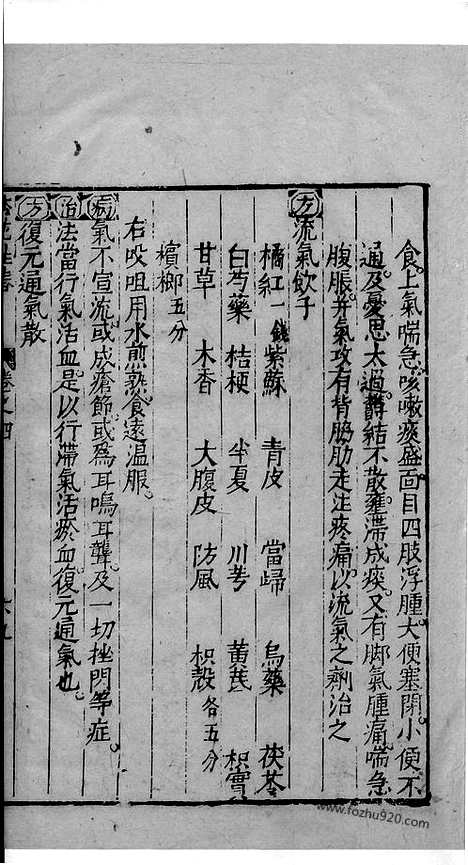 食上氣喘急咳嗽痰盛面目四肢浮腫大便塞閉小便不
通及憂思太過欝結不散壅滯成痰又有脚氣腫痛喘急
腹脹并氣攻肩背脇肋走注疼痛以流氣之劑治之
方 流氣飲子
橘紅一錢 紫蘇 青皮 當歸 烏藥 茯苓
白芍藥 桔梗 半夏 川芎 黄芪 枳實
甘草 木香 大腹皮 防風 枳殼各五分
檳榔五分
右㕮咀用水煎熟食遠温服
病 氣不宣流或成瘡節或爲耳鳴耳聾及一切挫閃等症
治 法當行氣活血是以行滯氣活瘀血復元通氣也
方 復元通氣散
卷之四
www.fozhu920.com